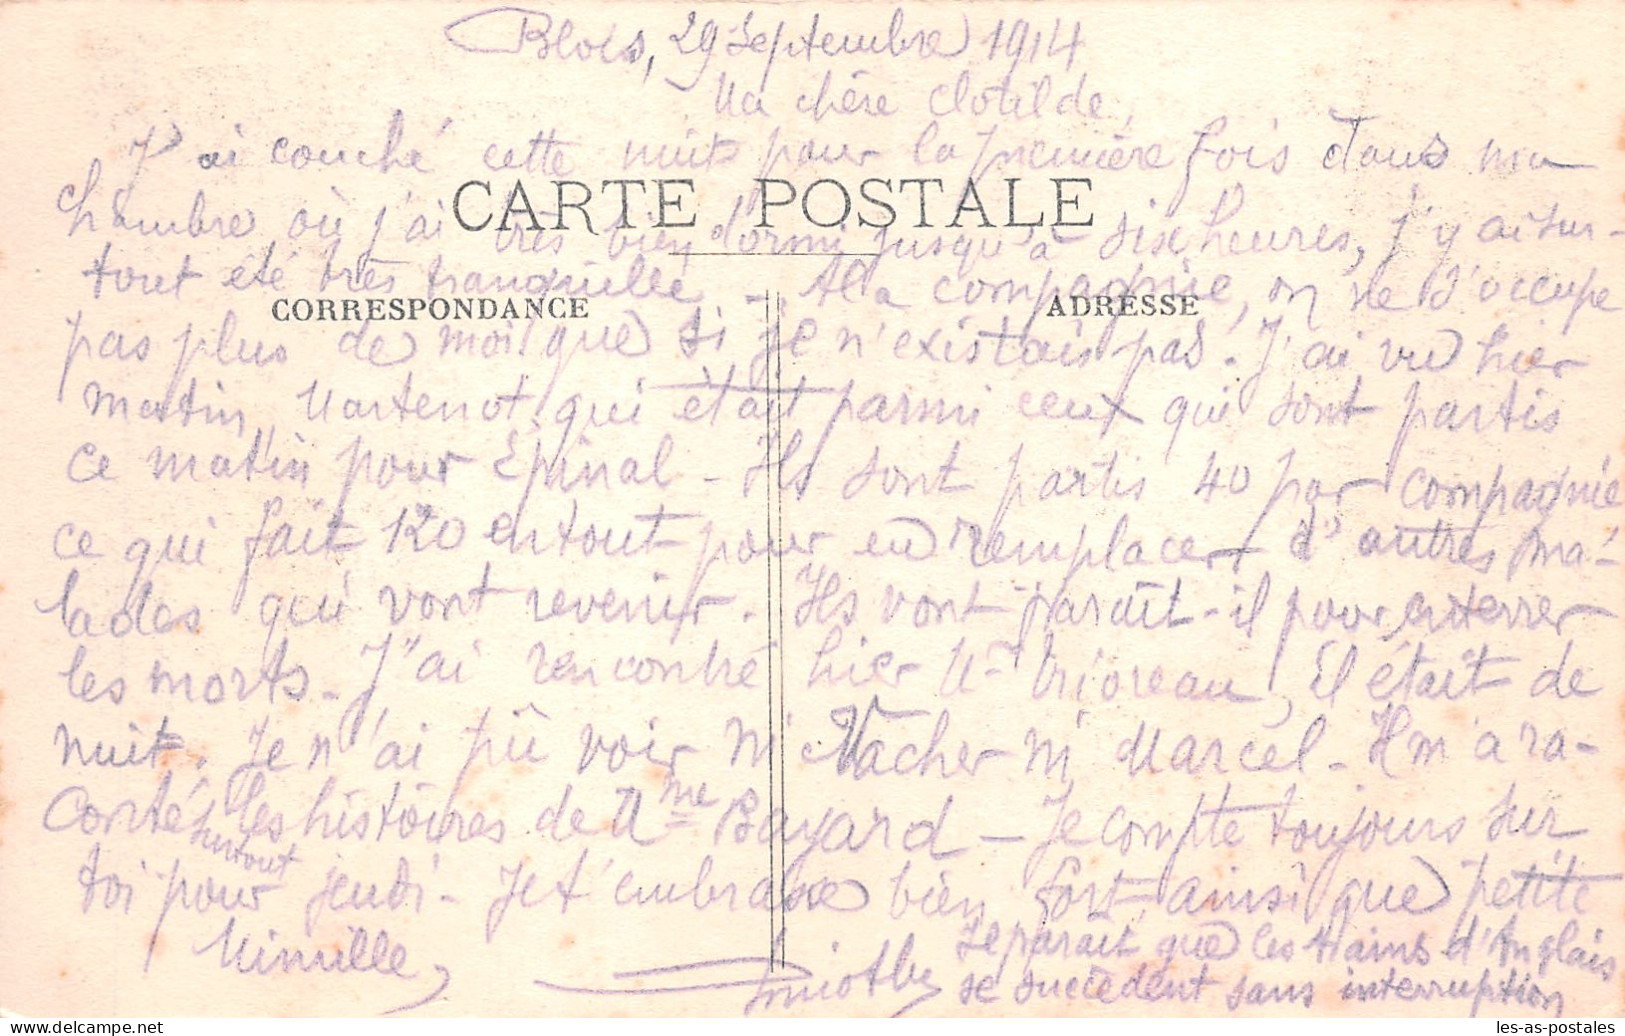 Blois, 29 Septembre 1914
Ma chère Clotilde,
J'ai couché cette nuit pour la première fois dans ma
CARTE POSTALE
chambre, où j'ai très bien dormi jusqu'à six heures, j'y ai sur-
tout été très tranquille. - A la compagnie, on ne s'occupe
CORRESPONDANCE
ADRESSE
pas plus de moi que si je n'existais pas. J'ai vu hier
matin, Martenot qui était parmi ceux qui sont partis
ce matin pour Epinal - Ils sont partis 40 par compagnie
ce qui fait 120 en tout pour en remplacer d'autres ma-
lades qui vont revenir. Ils vont parait-il pour enterrer
les morts - J'ai rencontré hier Mr Orioreau, il était de
nuit. Je n'ai pû voir ni Vacher ni Marcel - Il m'a ra-
conté les histoires de Mme Bayard - Je compte toujours sur
surtout
toi pour jeudi - Je t'embrasse bien fort, ainsi que petite
Mimille,
Il parait que les trains d'Anglais
se succèdent sans interruption
les-as-postales